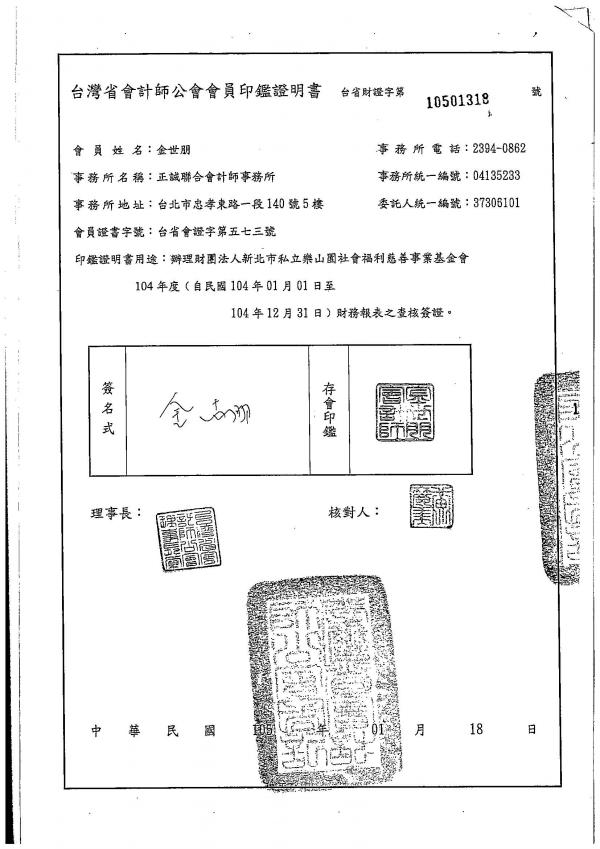 台灣省會計師公會會員印鑑證明書 台省財證字第 10501318 號
會員姓名：金世朋 事務所電話：2394-0862
事務所名稱：正誠聯合會計師事務所 事務所統一編號：04135233
事務所地址：台北市忠孝東路一段140號5樓 委託人統一編號：37306101
會員證書字號：台省會證字第五七三號
印鑑證明書用途：辦理財團法人新北市私立樂山園社會福利慈善事業基金會
104年度（自民國104年01月01日至
104年12月31日）財務報表之查核簽證。
簽名式 金世朋 存會印鑑 金世朋會計師
理事長： 核對人：
中華民國 105 年 01 月 18 日